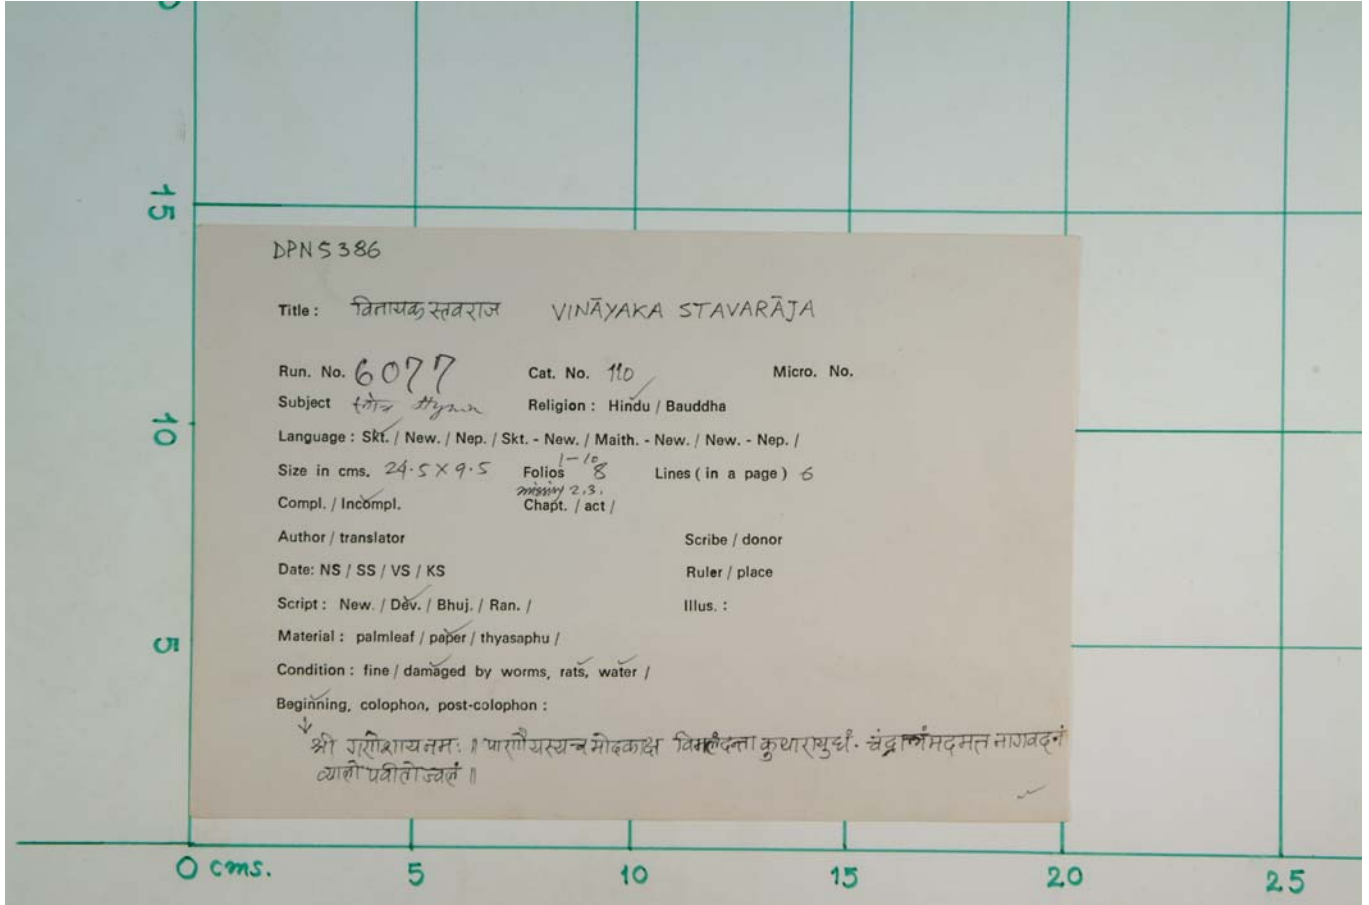 15
10
5
DPN 5386
Title : विनायक स्तवराज VINĀYAKA STAVARĀJA
Run. No. 6077 Cat. No. 110 Micro. No.
Subject स्तोत्र Hymn Religion : Hindu / Bauddha
Language : Skt. / New. / Nep. / Skt. - New. / Maith. - New. / New. - Nep. /
1-10
Size in cms. 24.5 X 9.5 Folios 8 Lines ( in a page ) 6
missing 2.3.
Compl. / Incompl. Chapt. / act /
Author / translator Scribe / donor
Date: NS / SS / VS / KS Ruler / place
Script : New. / Dev. / Bhuj. / Ran. / Illus. :
Material : palmleaf / paper / thyasaphu /
Condition : fine / damaged by worms, rats, water /
Beginning, colophon, post-colophon :
श्री गणेशाय नमः ॥ पाणौयस्यच मोदकाक्ष विमलंदन्ता कुथारायुधं. मदमत्त नागवदनं
व्यालोपवीतोज्वलं ॥
0 cms. 5 10 15 20 25